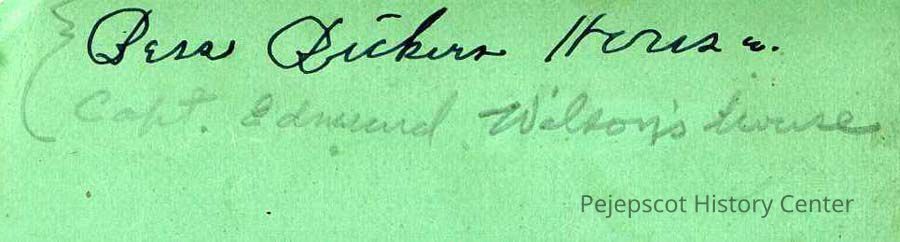 Bess Dickens House.
Capt. Edmund Wilson's house
Pejepscot History Center